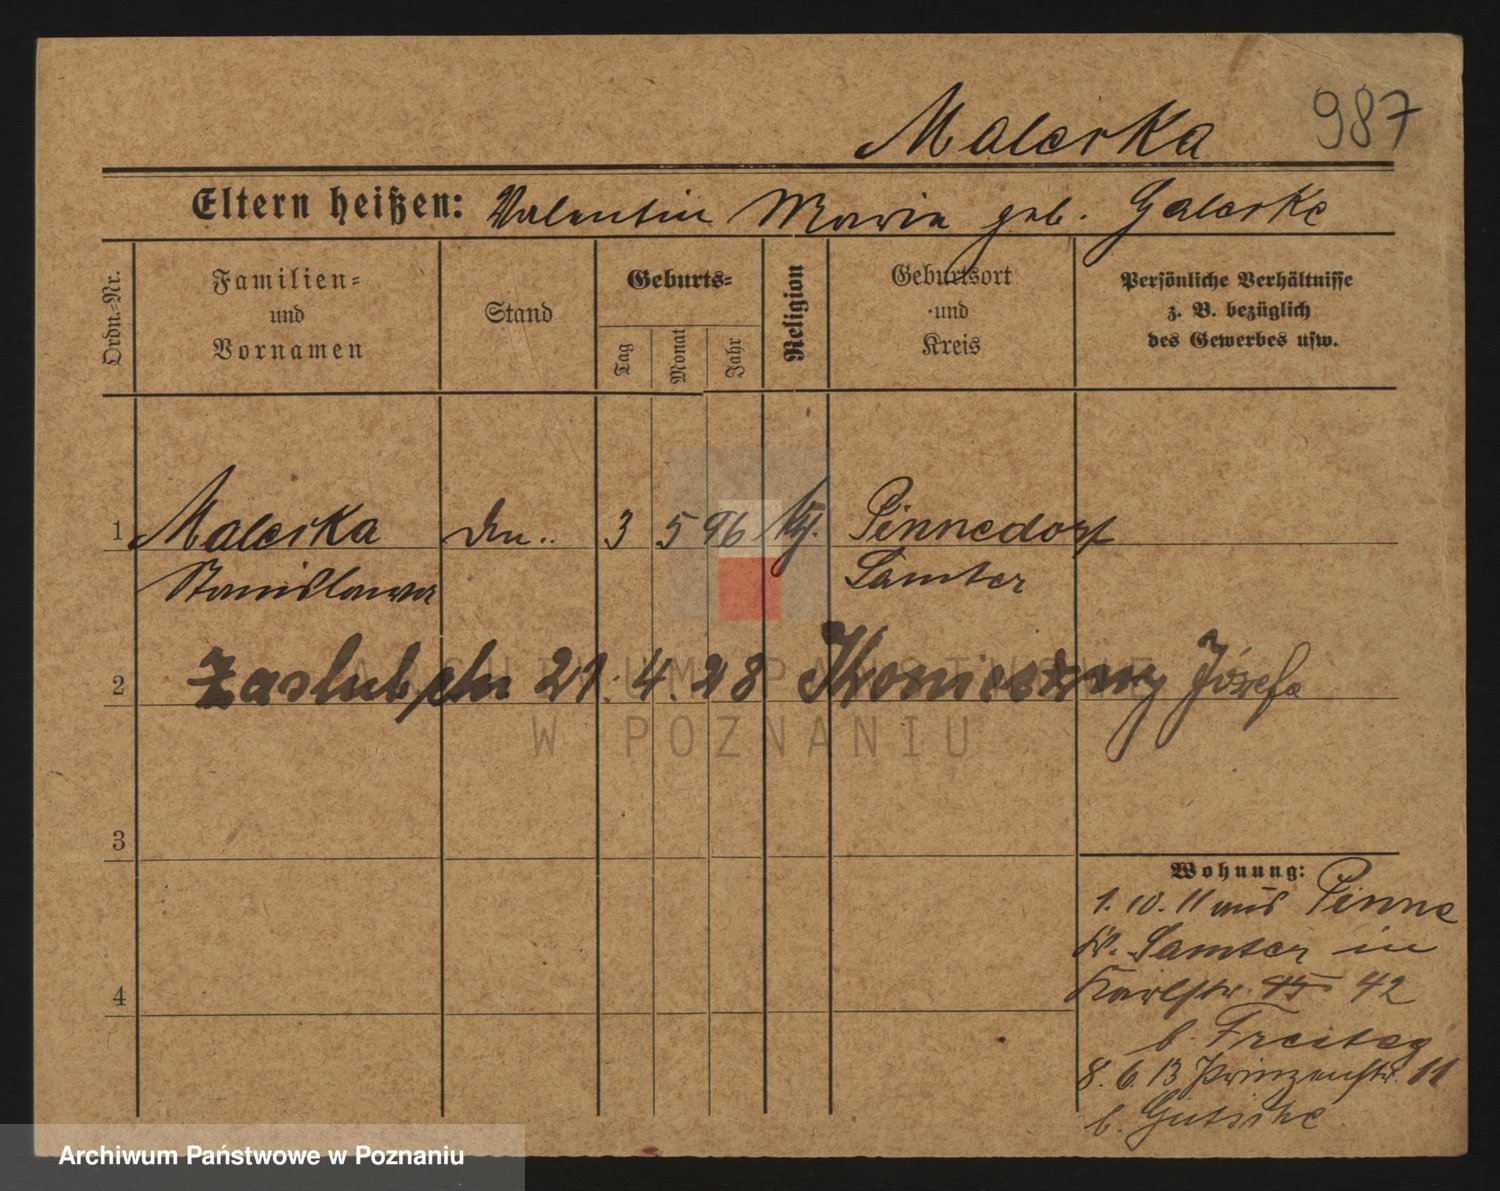 987
Malerka
Eltern heißen: Valentin Marie geb. Galerke
Ordn.-Nr.
Familien-
und
Vornamen
Stand
Geburts-
Tag
Monat
Jahr
Religion
Geburtsort
und
Kreis
Persönliche Verhältnisse
z. B. bezüglich
des Gewerbes usw.
1 Malerka 3 5 96 Pinnedorf
Stanislawa Samter
2 21.4.28 Konieczny Józefa
3
4
Wohnung:
1.10.11 aus Pinne
Kr. Samter in
Karlstr. 42
b. Freitag
8.6.13 Prinzenstr. 11
b. Gutsche
ARCHIWUM PAŃSTWOWE
W POZNANIU
Archiwum Państwowe w Poznaniu